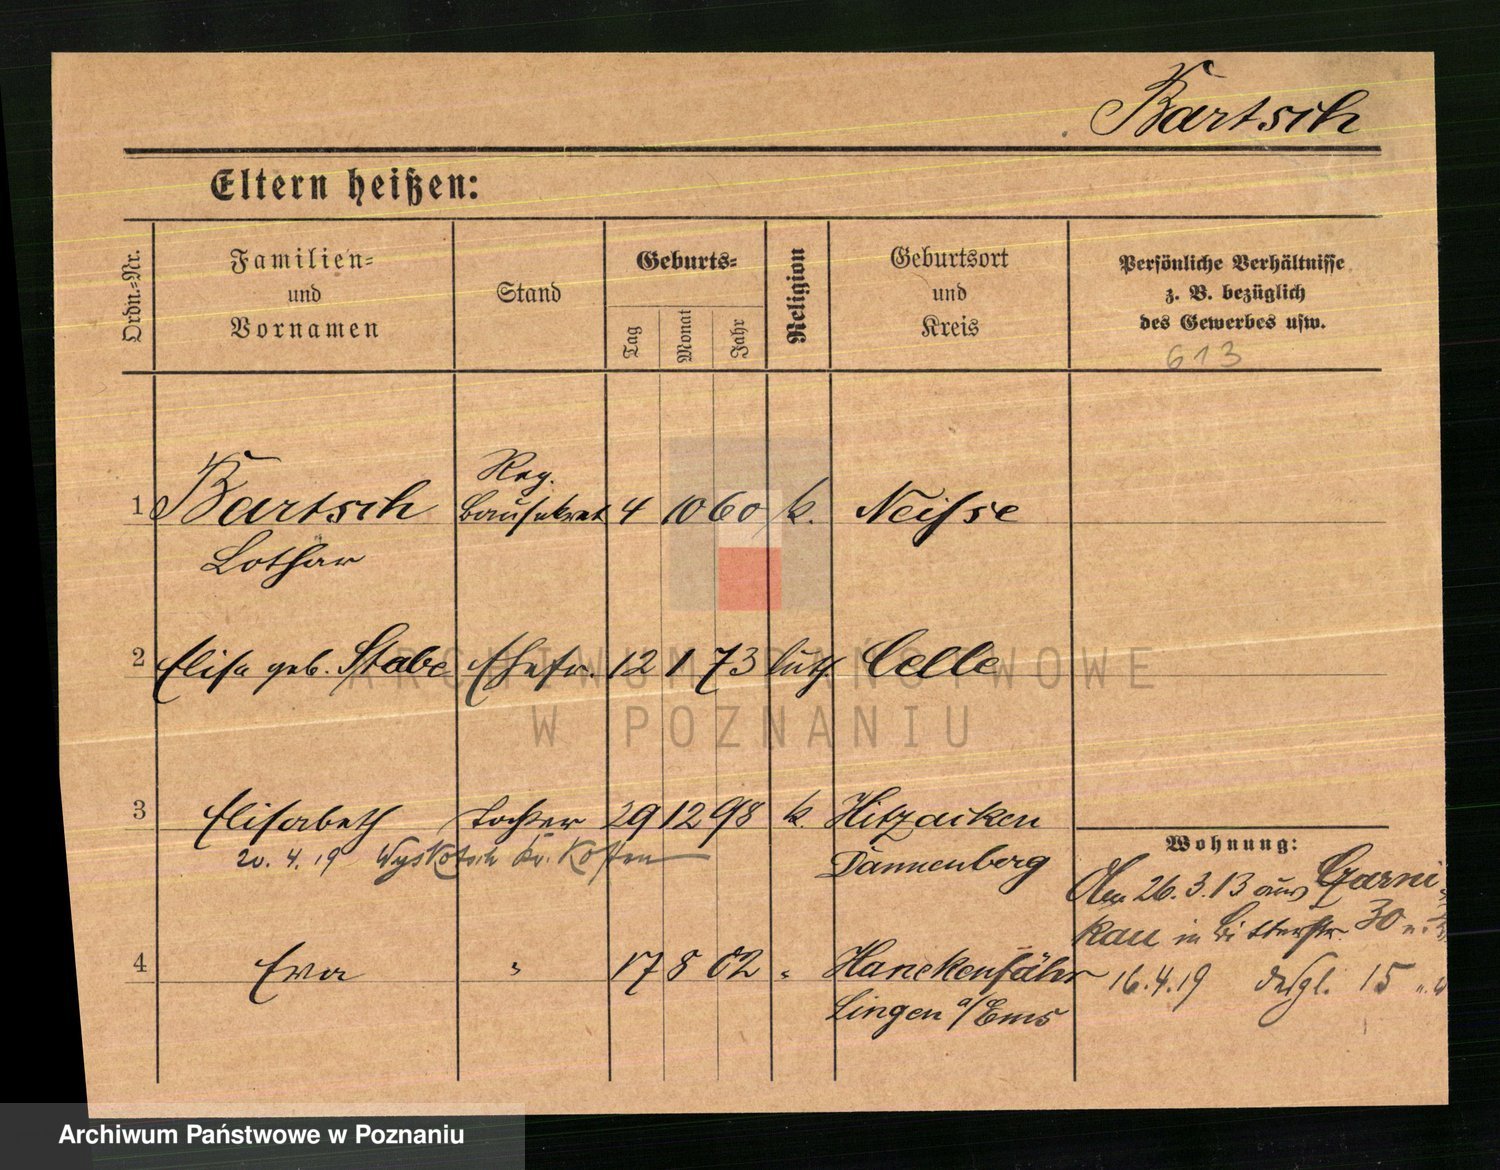 Bartsch
Eltern heißen:
Ordn.-Nr.
Familien-
und
Vornamen
Stand
Geburts-
Tag
Monat
Jahr
Religion
Geburtsort
und
Kreis
Persönliche Verhältnisse
z. B. bezüglich
des Gewerbes usw.
613
Reg.
1 Bartsch Bausekret 4 10 60 k. Neisse
Lothar
2 Elisa geb. Stabe Ehefr. 12 1 73 luth. Celle
ARCHIWUM PAŃSTWOWE
W POZNANIU
3 Elisabeth Tochter 29 12 98 k. Hitzacken
20. 4. 19 Wyskotsch Kr. Kosten
Dannenberg
Wohnung:
26.3.13 aus Czarni-
kau in Bitterstr. 30
4 Eva " 17 8 02 " Hanekenfähr
Lingen a/Ems
16.4.19 desgl. 15
Archiwum Państwowe w Poznaniu